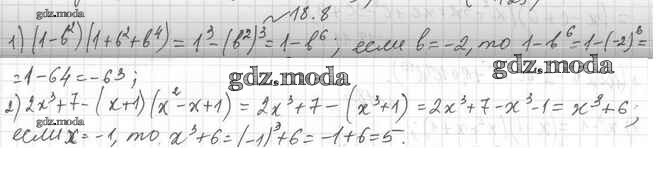 gdz.moda ~ 18.8
1) (1-b²)(1+b²+b⁴) = 1³-(b²)³ = 1-b⁶; если b=-2, то 1-b⁶=1-(-2)⁶=
=1-64=-63; gdz.moda gdz.moda
2) 2x³+7-(x+1)(x²-x+1) = 2x³+7-(x³+1) = 2x³+7-x³-1 = x³+6;
gdz.moda
если x=-1, то x³+6=(-1)³+6=-1+6=5.